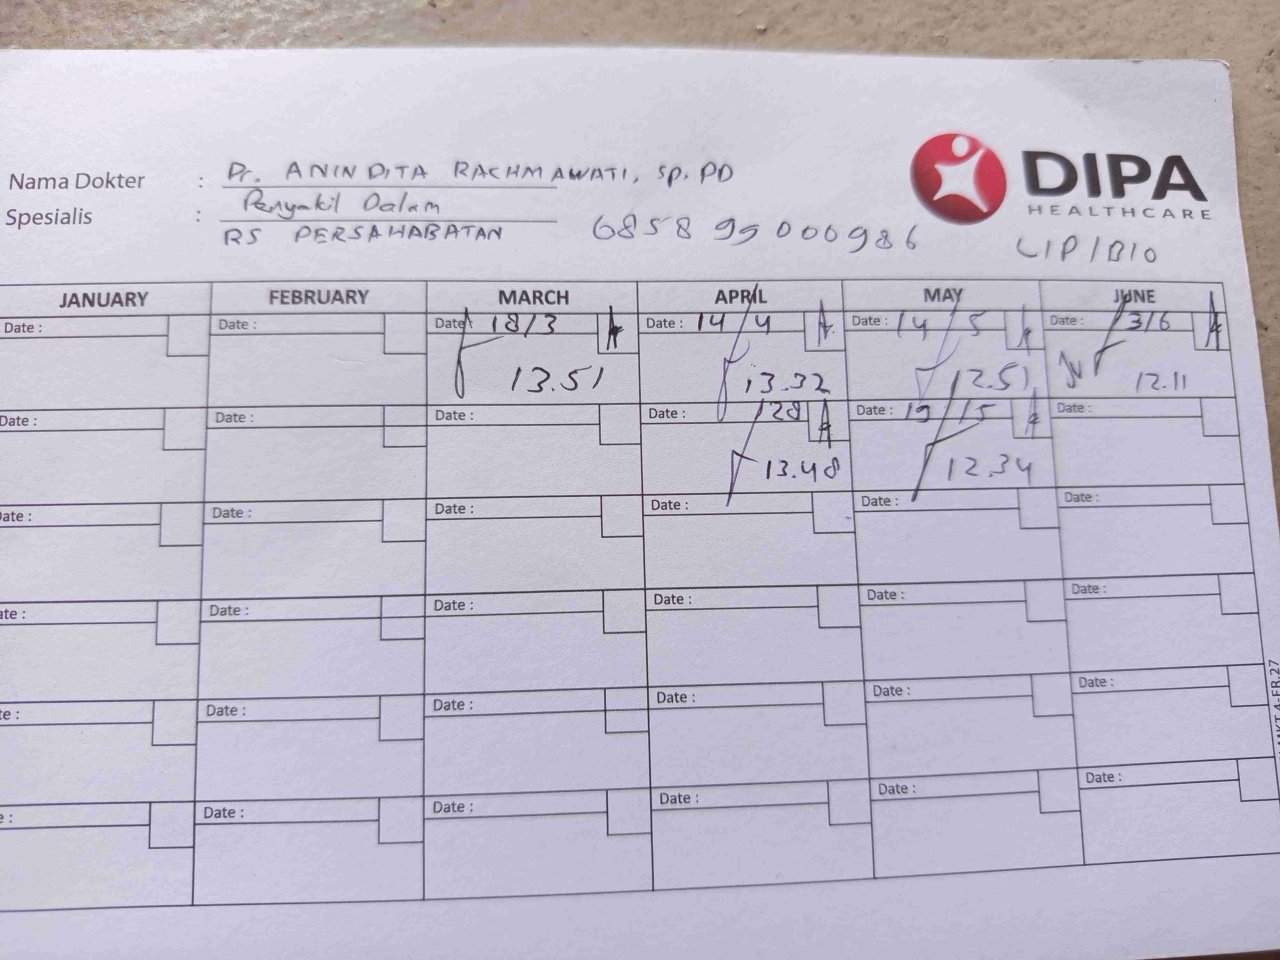 DIPA
HEALTHCARE
Nama Dokter : Dr. ANINDITA RACHMAWATI, SP.PD
Spesialis : Penyakil Dalam
RS PERSAHABATAN 6858 99000986
LIP/BIO
JANUARY FEBRUARY MARCH APRIL MAY JUNE
Date : Date : Date : 18/3 Date : 14/4 Date : 14/5 Date : 13/6
13.51 13.32 12.51 12.11
Date : Date : Date : 28 Date : 19/5 Date :
13.48 12.34
Date : Date : Date : Date : Date : Date :
Date : Date : Date : Date : Date : Date :
Date : Date : Date : Date : Date : Date :
Date : Date : Date : Date : Date : Date :